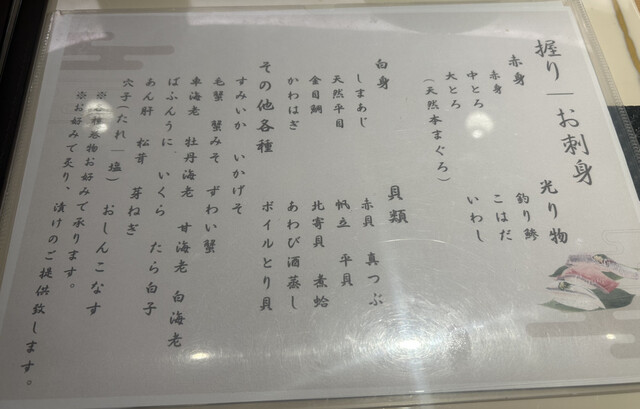 握り｜お刺身
赤身
赤身
中とろ
大とろ
（天然本まぐろ）
光り物
釣り鯵
こはだ
いわし
白身
しまあじ
天然平目
金目鯛
かわはぎ
貝類
赤貝 真つぶ
帆立 平貝
北寄貝 煮蛤
あわび酒蒸し
ボイルとり貝
その他各種
すみいか いかげそ
毛蟹 蟹みそ ずわい蟹
車海老 牡丹海老 甘海老 白海老
ばふんうに いくら たら白子
あん肝 松茸 芽ねぎ
穴子（たれ｜塩） おしんこなす
※各種巻物お好みで承ります。
※お好みで炙り、漬けのご提供致します。